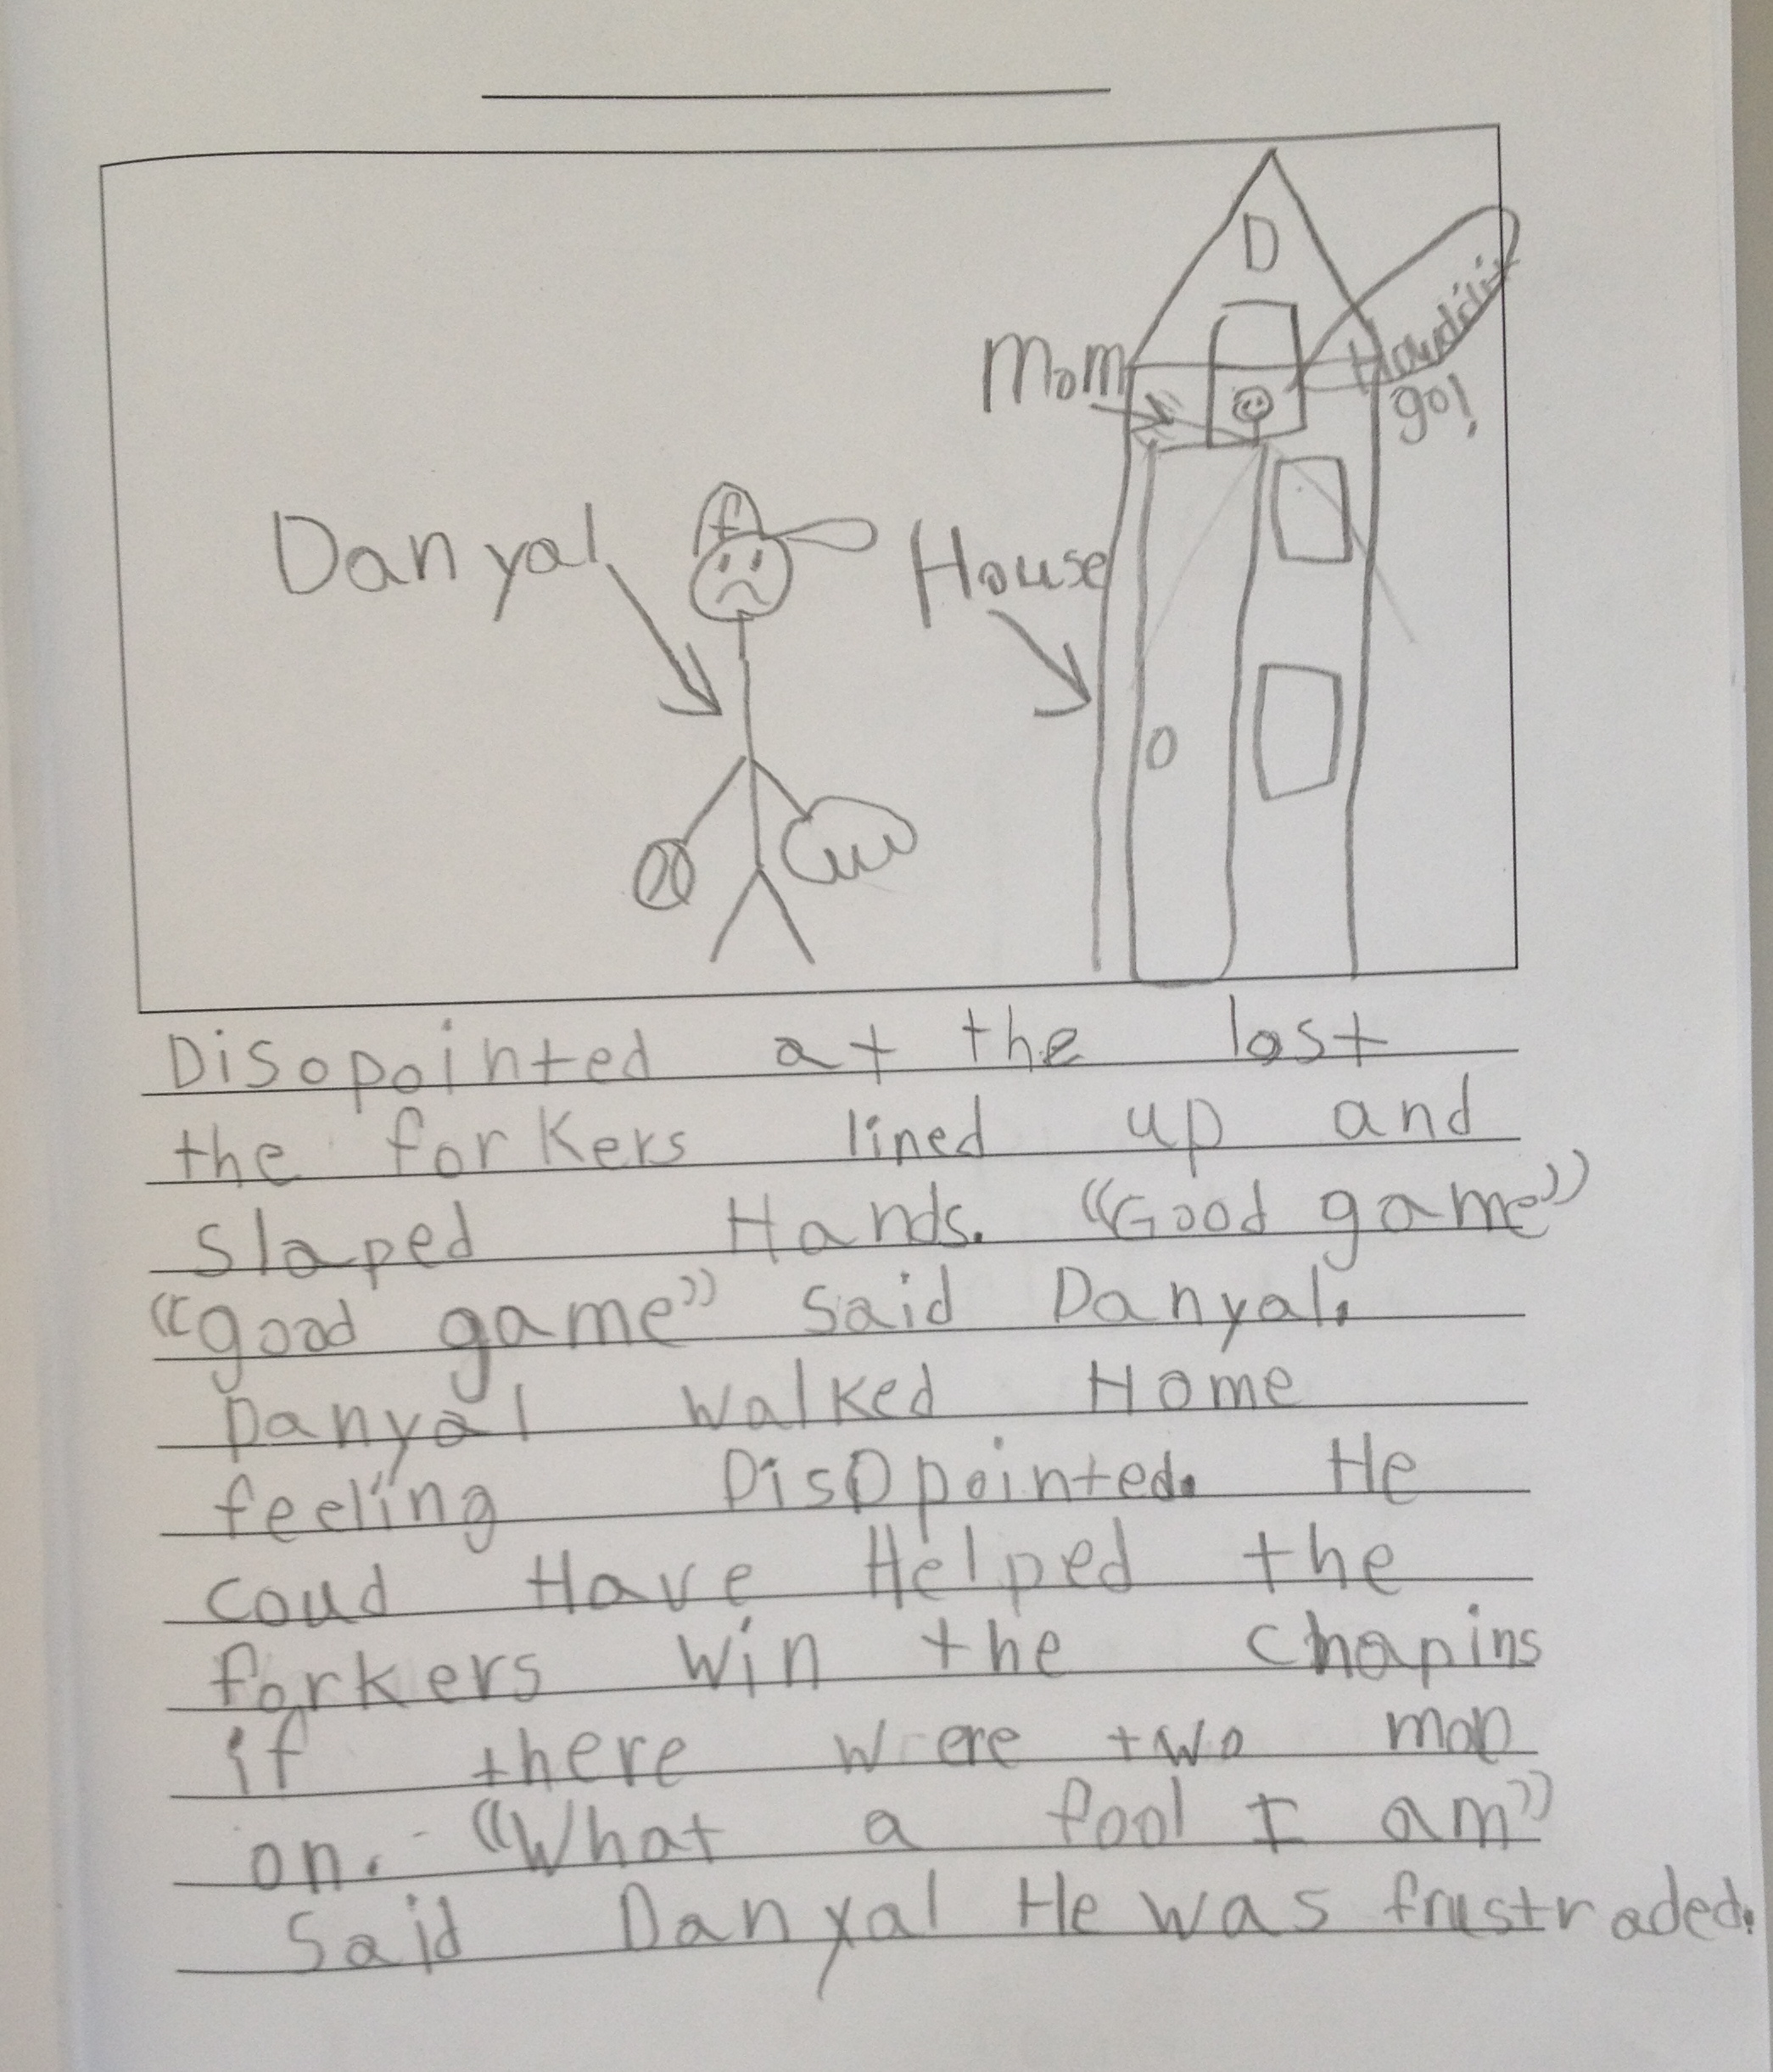 D
Mom
Howddit
go!
f
Danyal
House
Disopointed at the lost
the forkers lined up and
slaped Hands. "Good game"
"good game" said Danyal.
Danyal walked Home
feeling Disopointed. He
coud Have Helped the
forkers win the chapins
if there were two man
on. "What a fool I am"
Said Danyal He was frustraded.